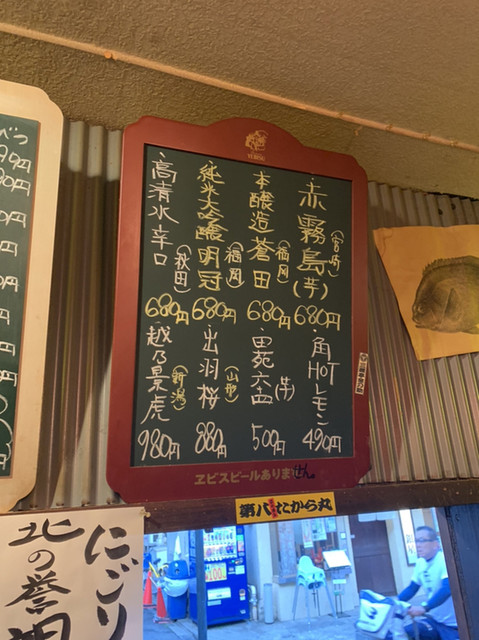 ・赤霧島(芋)
(宮崎)
680円
・本醸造 蒼田
(福岡)
680円
・純米大吟醸 明冠
(福岡)
680円
・高清水 辛口
(秋田)
680円
・角HOTレモン
490円
・田苑
500円
・出羽桜
(山形)
880円
・越乃景虎
(新潟)
980円
ヱビスビールありません。
第八たから丸
にごり
北の誉